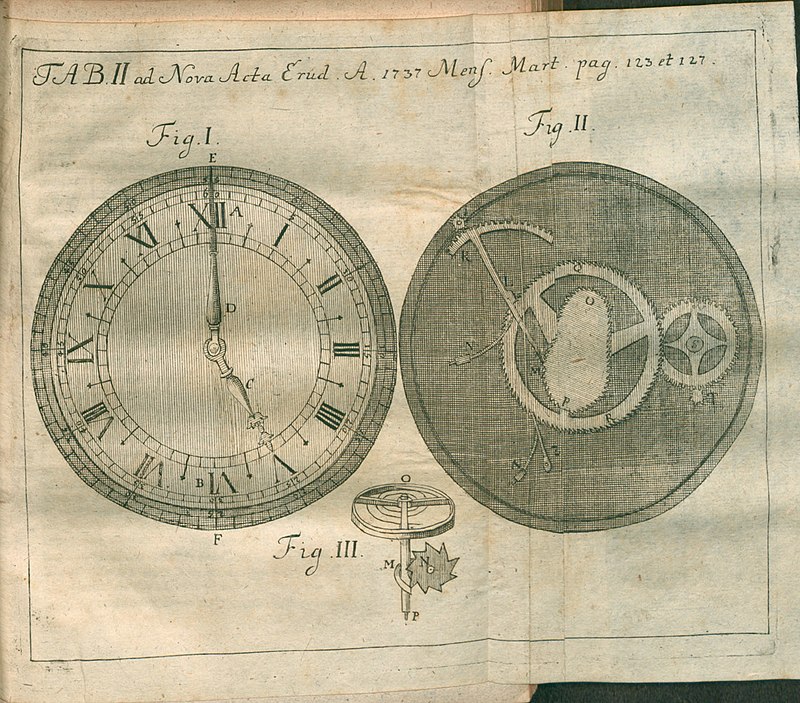 TAB.II ad Nova Acta Erud. A. 1737 Menſ. Mart. pag. 123 et 127.
Fig. I.
Fig. II.
E
XII
A
I
II
III
IIII
V
VI
VII
VIII
IX
X
XI
D
C
B
F
K
L
Q
O
M
P
R
S
T
Fig. III.
O
M
N
P